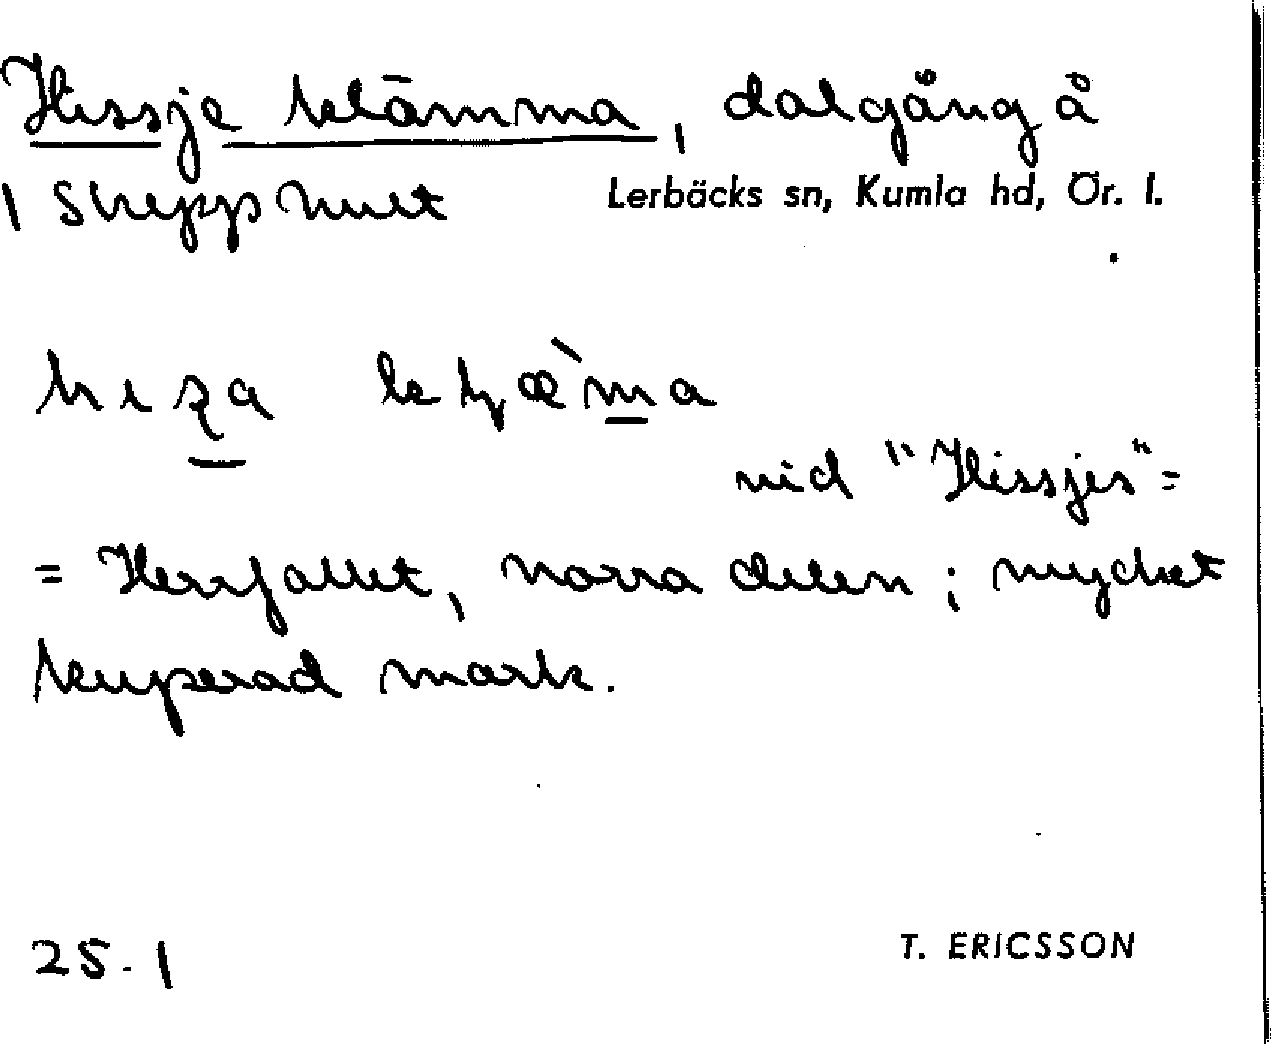 Hissje klämma, dalgång å
1 Skepphult
Lerbäcks sn, Kumla hd, Ör. l.
vid "Hissjes" =
= Herrfallet, norra delen; mycket
kuperad mark.
25.1
T. ERICSSON